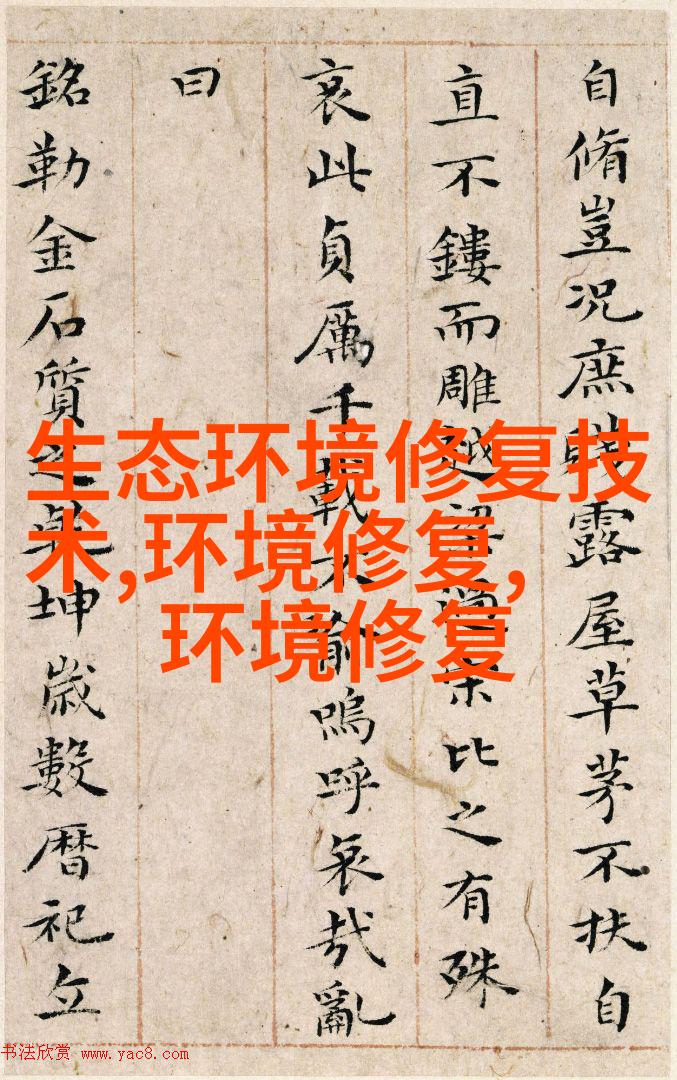 自脩豈況庶賤露屋草茅不扶自
直不鏤而雕越梁過宋比之有殊
哀此貞厲千載不渝嗚呼哀哉亂
曰
銘勒金石質之乾坤歲數暦祀立
生态环境修复技
术,环境修复,
环境修复
书法欣赏 www.yac8.com